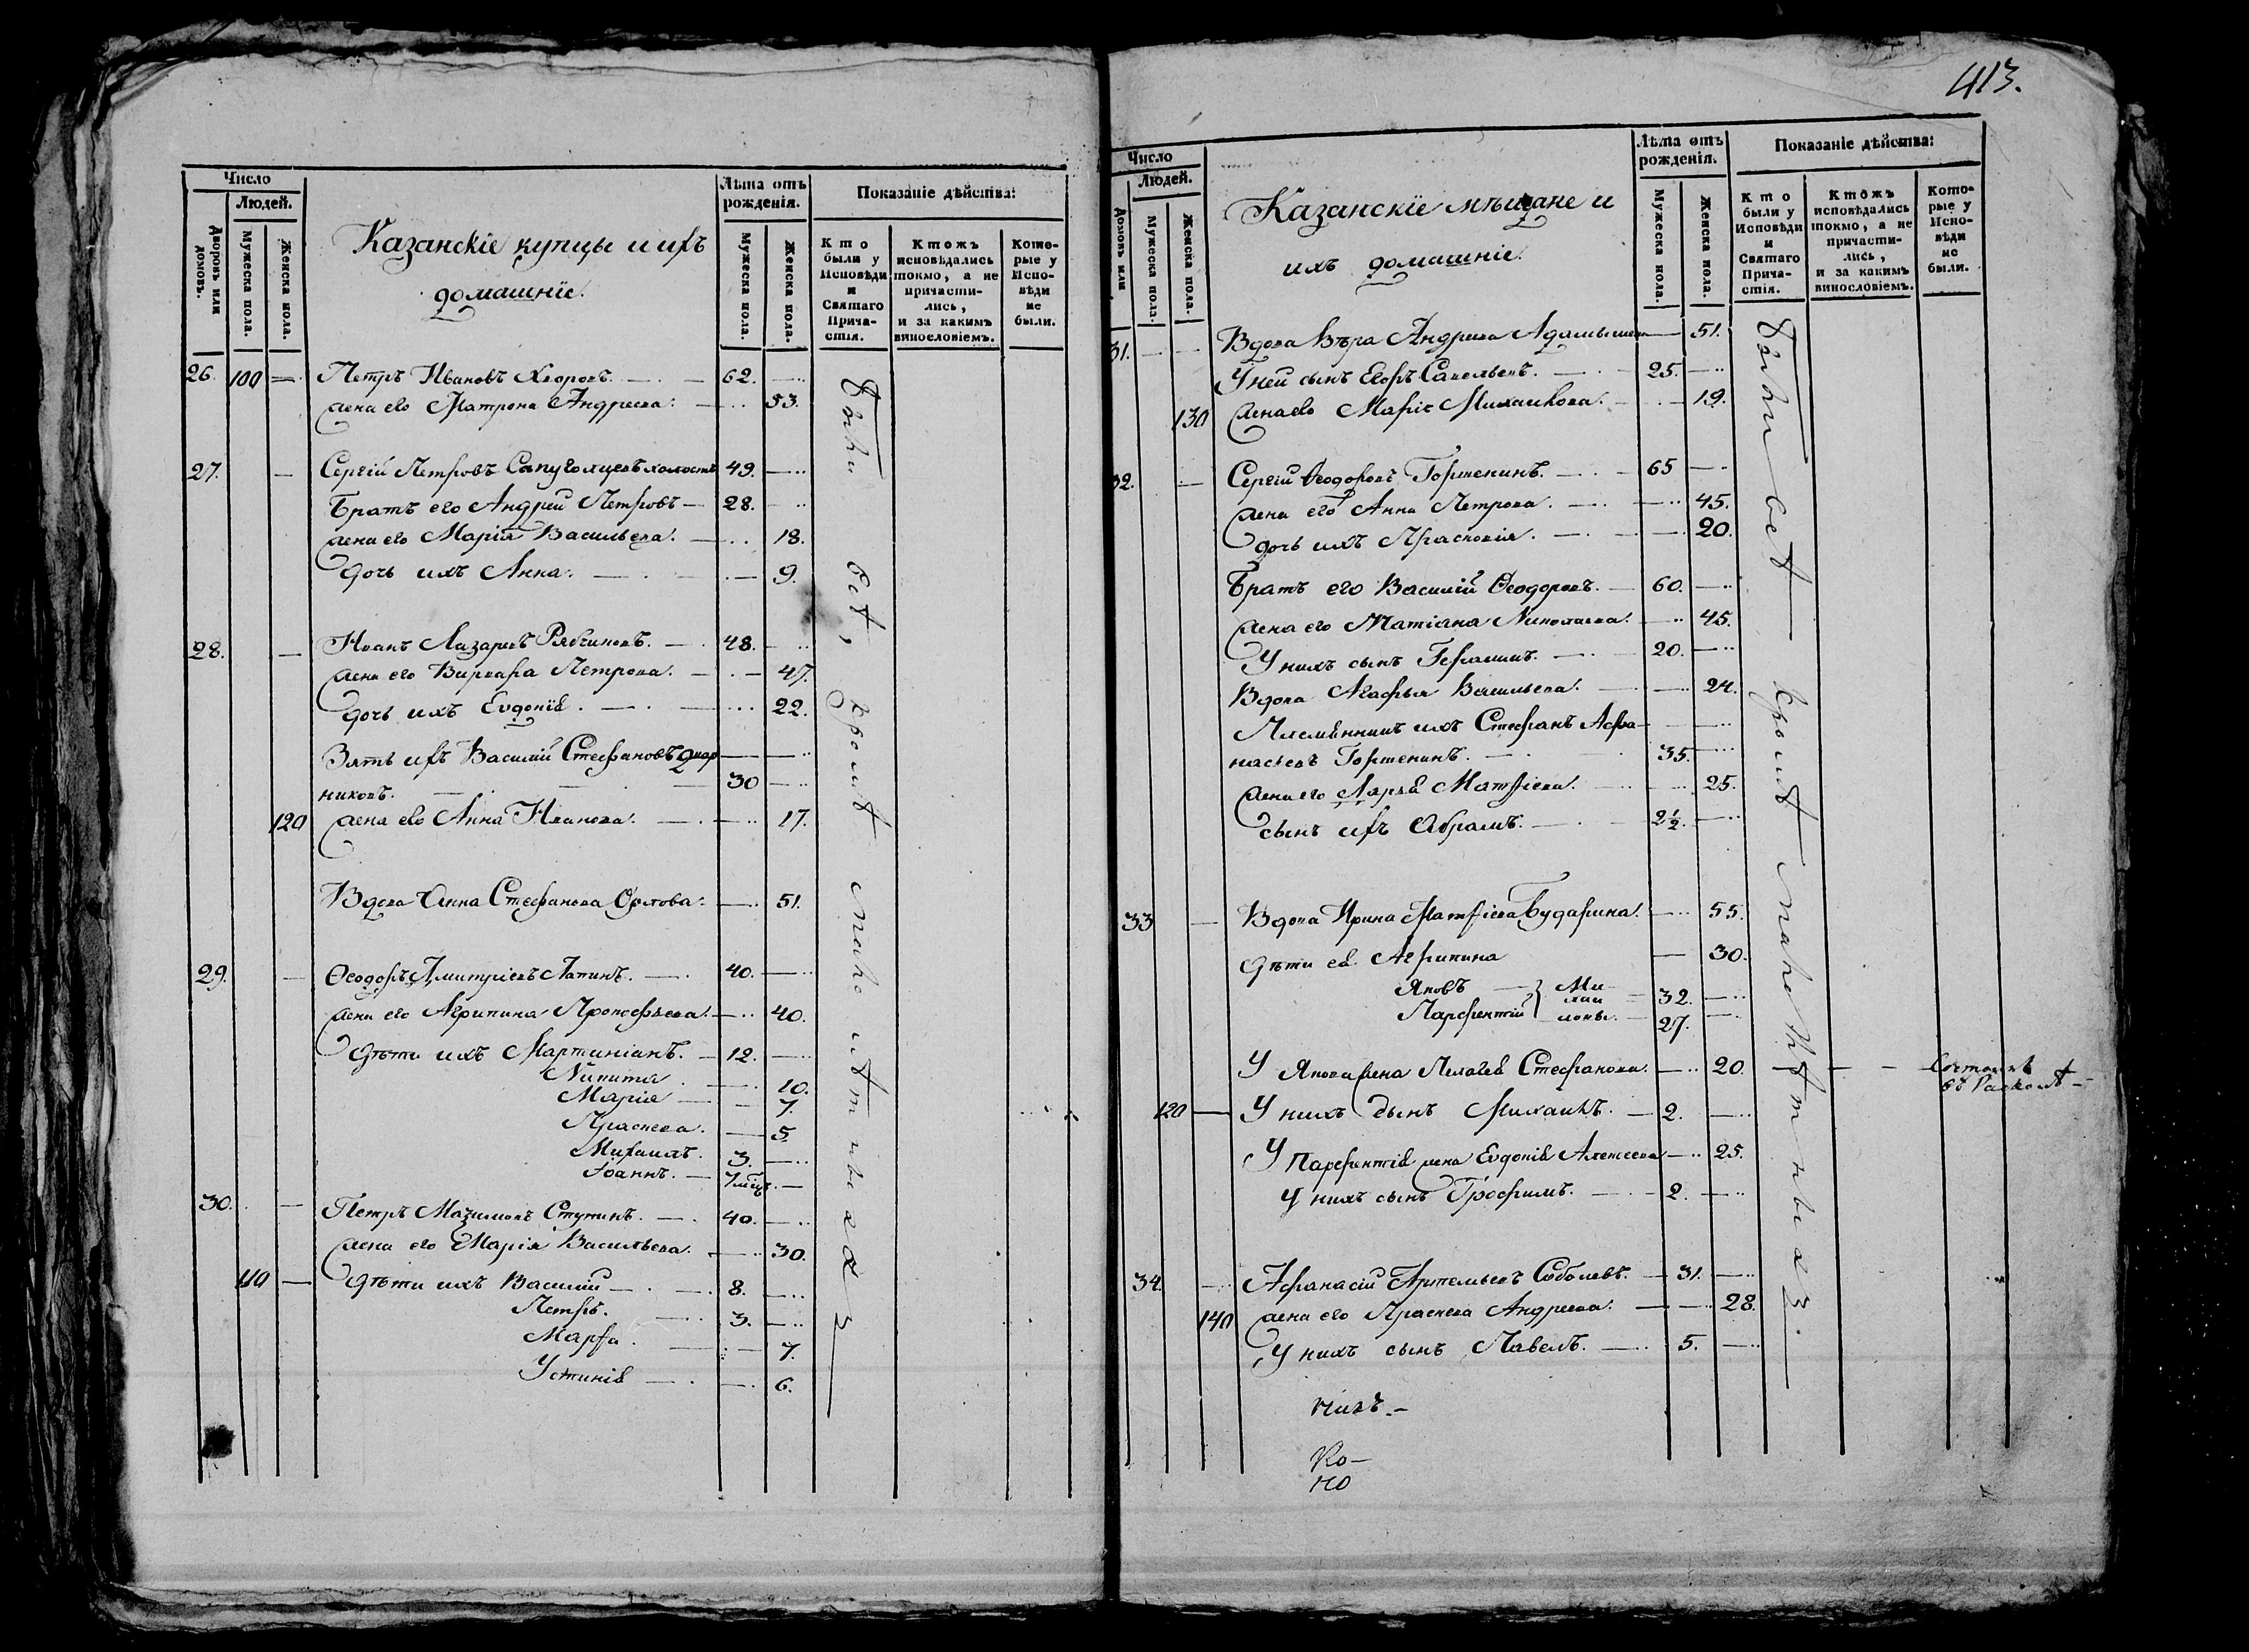 413.
Число
Людей.
Дворовъ или домовъ.
Мужеска пола.
Женска пола.
Казанскіе купцы и ихъ
домашніе.
Лѣта отъ рожденія.
Мужеска пола.
Женска пола.
Показаніе дѣйства:
Кто были у Исповѣди и Святаго Прича-стія.
Ктожъ исповѣдались токмо, а не причасти-лись, и за какимъ винословіемъ.
Кото-рые у Испо-вѣди не были.
26. 100 Петръ Ивановъ 62.
жена его Матрона Андреева. 53.
27. Сергій Петровъ холостъ 49.
Братъ его Андрей Петровъ 28.
жена его Марія Васильева. 18.
дочь ихъ Анна. 9.
28. Иванъ Лазаревъ Рябчиковъ. 48.
жена его Варвара Петрова. 47.
дочь ихъ Евдокія. 22.
Зять ихъ Василий Стефановъ Двор
никовъ. 30
120 жена его Анна Иванова. 17.
Вдова Анна Стефанова Орлова. 51.
29. Ѳеодоръ Дмитріевъ Лапинъ. 40.
жена его Агрипина Прокофьева. 40.
дѣти ихъ Мартиніанъ. 12.
Никита. 10.
Марія 7.
Праскева. 5.
Михаилъ. 3.
Іоаннъ. 7 мѣц.
30. Петръ Ступинъ. 40.
жена его Марія Васильева. 30.
110 дѣти ихъ Василій 8.
Петръ. 3.
Марѳа. 7.
Устинія 6.
были всѣ, кромѣ малолѣтныхъ
Число
Людей.
Домовъ или
Мужеска пола.
Женска пола.
Казанскіе мѣщане и
ихъ домашніе.
Лѣта отъ рожденія.
Мужеска пола.
Женска пола.
Показаніе дѣйства:
Кто были у Исповѣди и Святаго Прича-стія.
Ктожъ исповѣдались токмо, а не причасти-лись, и за какимъ винословіемъ.
Кото-рые у Испо-вѣди не были.
31. Вдова Вѣра Андреева 51.
У ней сынъ Егоръ Савельевъ. 25.
130 жена его Марія Михайлова. 19.
32. Сергій Ѳеодоровъ Горшенинъ. 65
жена его Анна Петрова. 45.
дочь ихъ Прасковія. 20.
Братъ его Василій Ѳеодоровъ. 60.
жена его Матіана Николаева. 45.
У нихъ сынъ Герасимъ. 20.
Вдова Агафья Васильева. 24.
Племянникъ ихъ Стефанъ Афа
насьевъ Горшенинъ. 35.
жена его Дарья Матѳіева. 25.
сынъ ихъ Абрамъ. 2½.
33 Вдова Ирина Матѳіева Бударина. 55.
дѣти ея Агрипина 30.
Яковъ 32.
Парфентій 27.
У Якова жена Пелагея Стефанова. 20. Состоитъ
въ Расколѣ
120 У нихъ сынъ Михаилъ. 2.
У Парфентія жена Евдокія Алексеева 25.
У нихъ сынъ Трофимъ. 2.
34. Афанасій Соболевъ. 31.
140 жена его Праскева Андреева. 28.
У нихъ сынъ Павелъ. 5.
были всѣ кромѣ малолѣтныхъ.